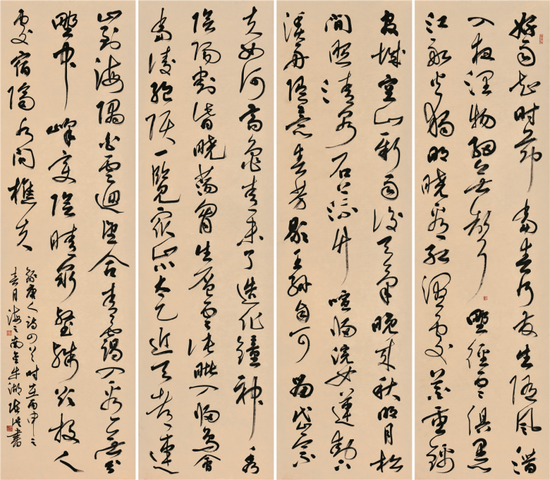 好雨知时节当春乃发生随风潜
入夜润物细无声野径云俱黑
江船火独明晓看红湿处花重锦
官城空山新雨后天气晚来秋明月松
间照清泉石上流竹喧归浣女莲动下
渔舟随意春芳歇王孙自可留岱宗
夫如何齐鲁青未了造化钟神秀
阴阳割昏晓荡胸生层云决眦入归鸟会
当凌绝顶一览众山小太乙近天都连
山到海隅白云回望合青霭入看无
野中峰变阴晴众壑殊欲投人
处宿隔水问樵夫
录唐人诗四首时在丙申之
春月海上南 书